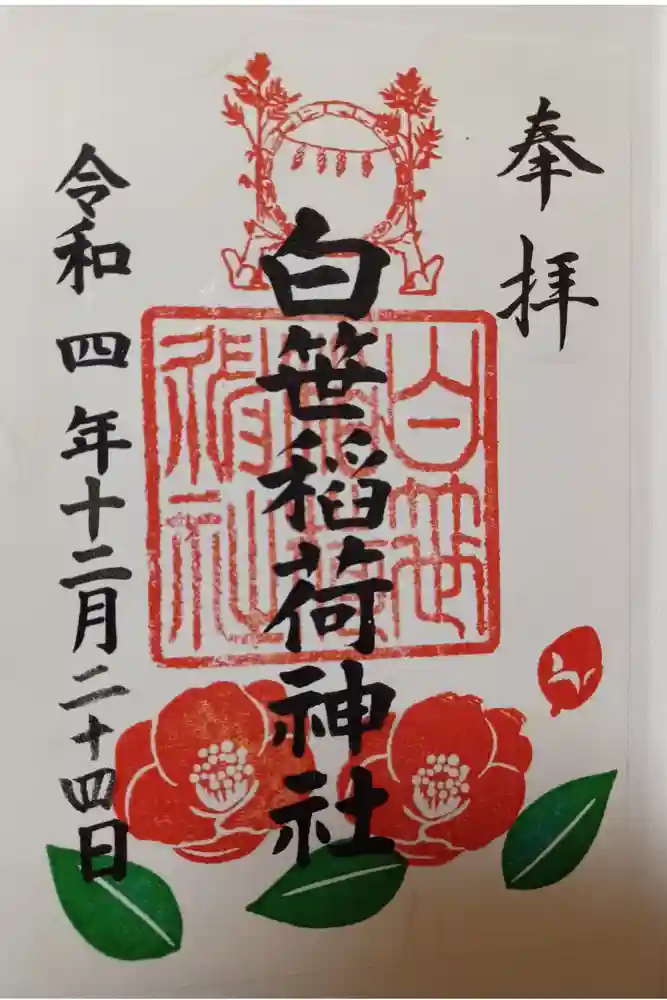 奉拝
白笹稲荷神社
白笹
稲荷
神社
令和四年十二月二十四日